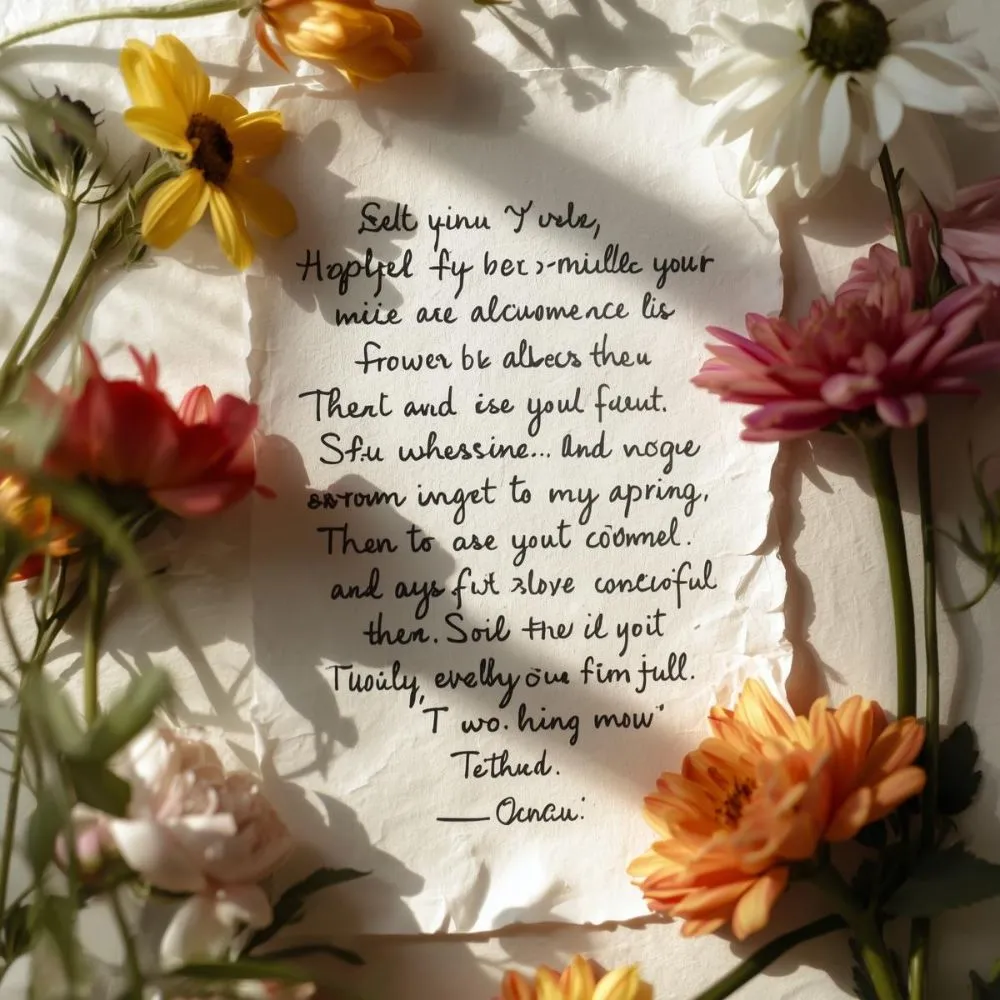 Selt yinu Y vele,
Hoplfel fy bec›-miulle your
miie are alcuomence lis
frower bk albecs theu
Thert and ise youl fuut.
Sfu whessine... And nogue
inget to my apring,
Then to ase yout coommel.
and ays fut slove concioful
then. Soil the il yoit
Tuoily, evelby oue fim jull.
T wo. hing mow'
Tethud.
— Ocnau: